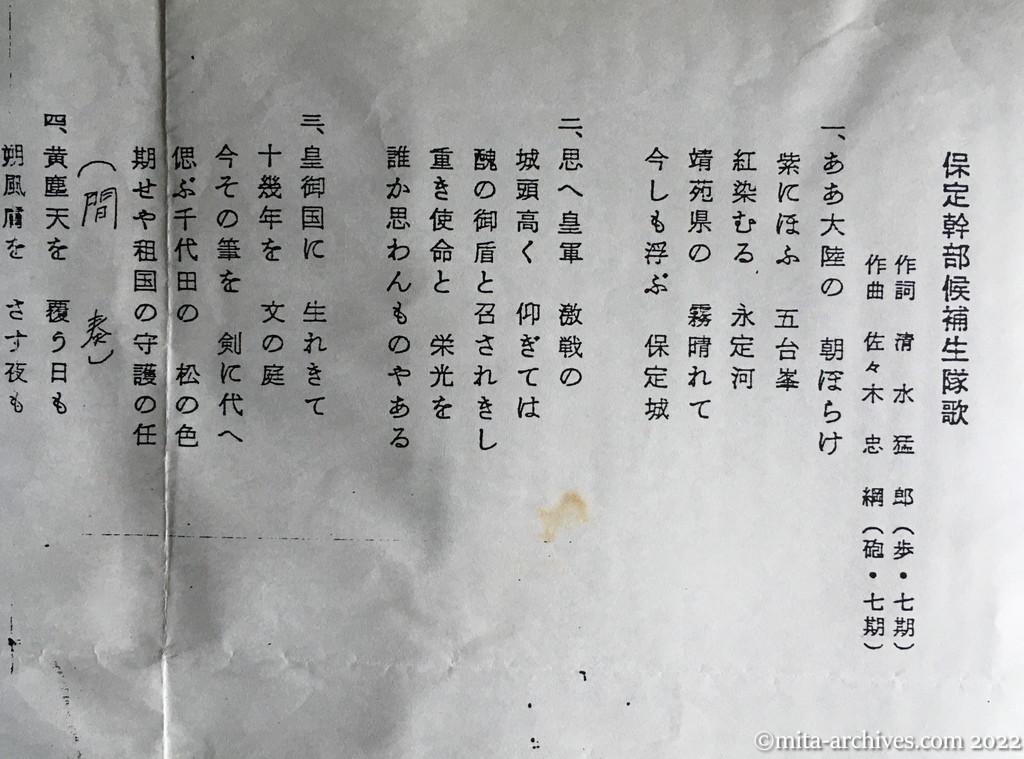 保定幹部候補生隊歌
作詞 清水猛郎(歩・七期)
作曲 佐々木忠綱(砲・七期)
一、ああ大陸の 朝ぼらけ
紫にほふ 五台峯
紅染むる 永定河
靖苑県の 霧晴れて
今しも浮ぶ 保定城
二、思へ皇軍 激戦の
城頭高く 仰ぎては
醜の御盾と召されきし
重き使命と 栄光を
誰か思わんものやある
三、皇御国に 生れきて
十幾年を 文の庭
今その筆を 剣に代へ
偲ぶ千代田の 松の色
期せや祖国の守護の任
(間 奏)
四、黄塵天を 覆う日も
朔風膚を さす夜も
©mita-archives.com 2022